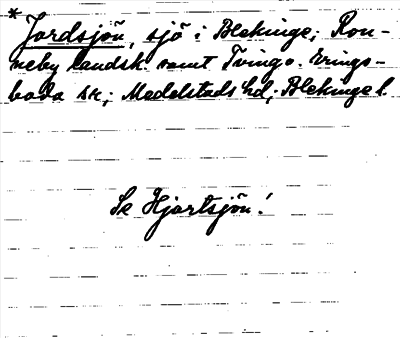 * Jordsjön, sjö i Blekinge; Ron-
neby landsk. samt Tving o. Erings-
boda sk; Medelstads hd; Blekinge l.
Se Hjortsjön!